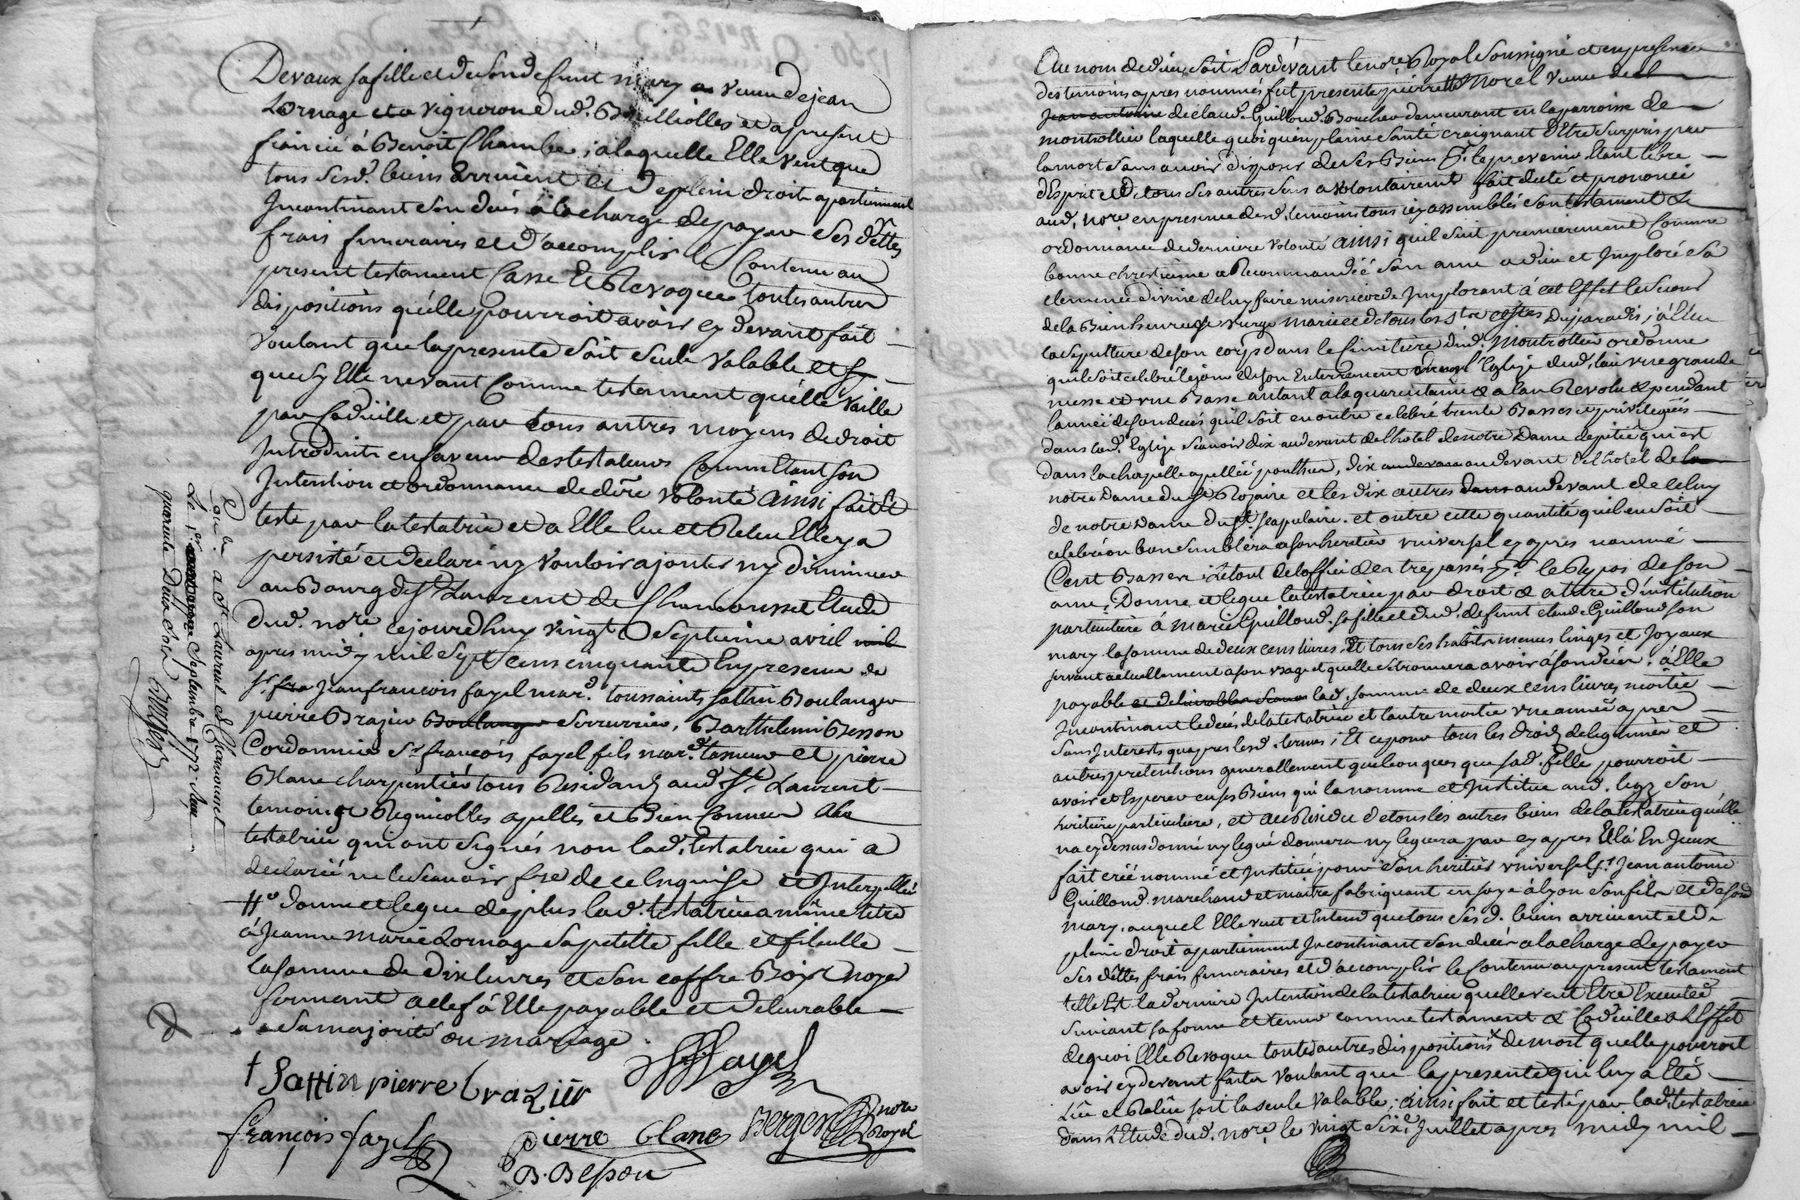 Devaux sa fille et de son defunt mary a veuve de jean
Lornage et a vigneron dud. Brulliolles et a present
fiancée à Benoit Chambe ; a laquelle Elle veut que
tous sesd. biens arrivent et de plein droit apartiennent
Incontinant son decés a la charge de payer ses dettes
frais funeraires et d'accomplir le Contenu au
present testament Casse Et Revoque toutes autres
dispositions qu'elle pourroit avoir cy devant fait
voulant que la presente soit seule valable et sy
que sy Elle ne vaut Comme testament qu'elle vaille
par Codicille et par tous autres moyens de droit
Introduits en faveur des testateurs Consultant son
Intention et ordonnance de dere volonté ainsi fait et
testé par la testatrice et a Elle lue et Relue Elle y a
persisté et declaré n'y vouloir ajouter ny diminuer
au Bourg de St Laurent de Chamousset Etude
dud. nore cejourdhuy vingt septieme avril mil
apres midy mil sept cens cinquante En presence de
sr fra Jean francois fayel mard. toussaints sattin Boulanger
pierre Brazier Boulanger serrurier, Barthelemi Besson
Cordonnier sr francois fayel fils mard. tanneur et pierre
Blanc charpentier tous Residants aud. St Laurent
temoins Regnicolles apelles et Bien Connus de la
testatrice qui ont signés non lad. testatrice qui a
declaré ne le scavoir fere de ce Enquise et Interpellée
# donne et legue de plus lad. testatrice a même titre
à Jeanne Marie Lornage sa petitte fille et filleulle
la somme de dix livres et son coffre Bois noyer
fermant a clef à Elle payable et delivrable
a sa majorité ou mariage.
† Sattin pierre brazier
JFFayel
françois fayel
pierre blanc Bergeron nore Royal
B. Besson
Con.lé a St Laurent de Chamousset
Le 1er Septembre 1772. Reçu
quarante Deux sols
Au nom de dieu soit Pardevant le nore Royal soussigné et en presence
des temoins apres nommés fut presente pierrette Morel veuve de
Jean antoine de claude Guilloud Boucher demeurant en la parroisse de
montrottier laquelle quoiqu'en pleine santé craignant d'Etre surpris par
la mort sans avoir disposer de ses Biens pr. le prevenir Etant libre
d'Esprit et de tous ses autres sens a volontairement fait dicté et prononcé
aud. nore en presence desd. temoins tous icy assemblés son testament &
ordonnance de derniere volonté ainsi quil suit premierement Comme
bonne chrestienne a Recommandéé son ame a dieu et Imploré sa
clemence divine de luy faire misericorde Implorant à cet Effet le secour
de la Bienheureuse vierge marie et de tous les sts et stes du paradis ; à Elu
la sepulture de son corps dans le Cimitiere dud. Montrottier ordonne
quil soit celebré le jour de son Enterrement dans l'Eglise dud. lieu une grande
messe et une Basse autant a la quarantaine & a l'an Revolu & pendant
l'année de son deces quil soit en outre celebré trente Basses et privilegiées
dans lad. Eglise scavoir dix au devant de l'hotel de notre Dame de pitié qui est
dans la chapelle apellée pouthier, dix au devant de l'hotel de la
notre Dame du St Rozaire et les dix autres dans au devant de celuy
de notre Dame du st. scapulaire. et outre cette quantité quil en soit
celebré ou bon semblera a son heritier universel cy apres nommé
Cent Basses ; Le tout de l'office des trepassés pr. le Repos de son
ame, Donne et legue la testatrice par droit & a titre d'institution
particuliere à Marie Guilloud sa fille et dud. defunt claude Guilloud son
mary la somme de deux cens livres, Et tous ses habits menus linges et Joyaux
servant actuellement a son usage et quelle se trouvera avoir a son decès. à Elle
payable et delivrable scavoir lad. somme de deux cens livres moitié
Incontinant le decés de la testatrice et l'autre moitié une année apres
sans Interests que pres lesd. termes ; Et ce pour tous les droits de legitime et
autres pretentions generallement quelconques que sad. fille pourroit
avoir et Esperer en ses Biens qui la nomme et Institue aud. legz son
heritiere particuliere, et au Residu de tous les autres biens de la testatrice qu'elle
na cy dessus donné ny legué donnera ny leguera par cy apres Ell'à En Iceux
fait créé nommé et Institué pour son heritier universel sr. Jean antoine
Guilloud marchand et maitre fabriquant en soye a lyon son fils et de son d.
mary, auquel Elle veut et Entend que tous sesd. biens arrivent et de
plein droit apartiennent Incontinant son decés a la charge de payer
ses dettes frais funeraires et d'accomplir le Contenu au present testament
telle Est la derniere Intention de la testatrice quelle veut Etre Executée
suivant sa forme et teneur comme testament & Codicille a L'Effet
dequoi Elle Revoque toutes autres dispositions x de mort quelle pourroit
avoir cy devant faites voulant que la presente qui luy a Eté
Lue et Relue soit la seule valable ; ainsi fait et testé par lad. testatrice
dans l'Etude dud. nore. le vingt six. Juillet apres midy mil